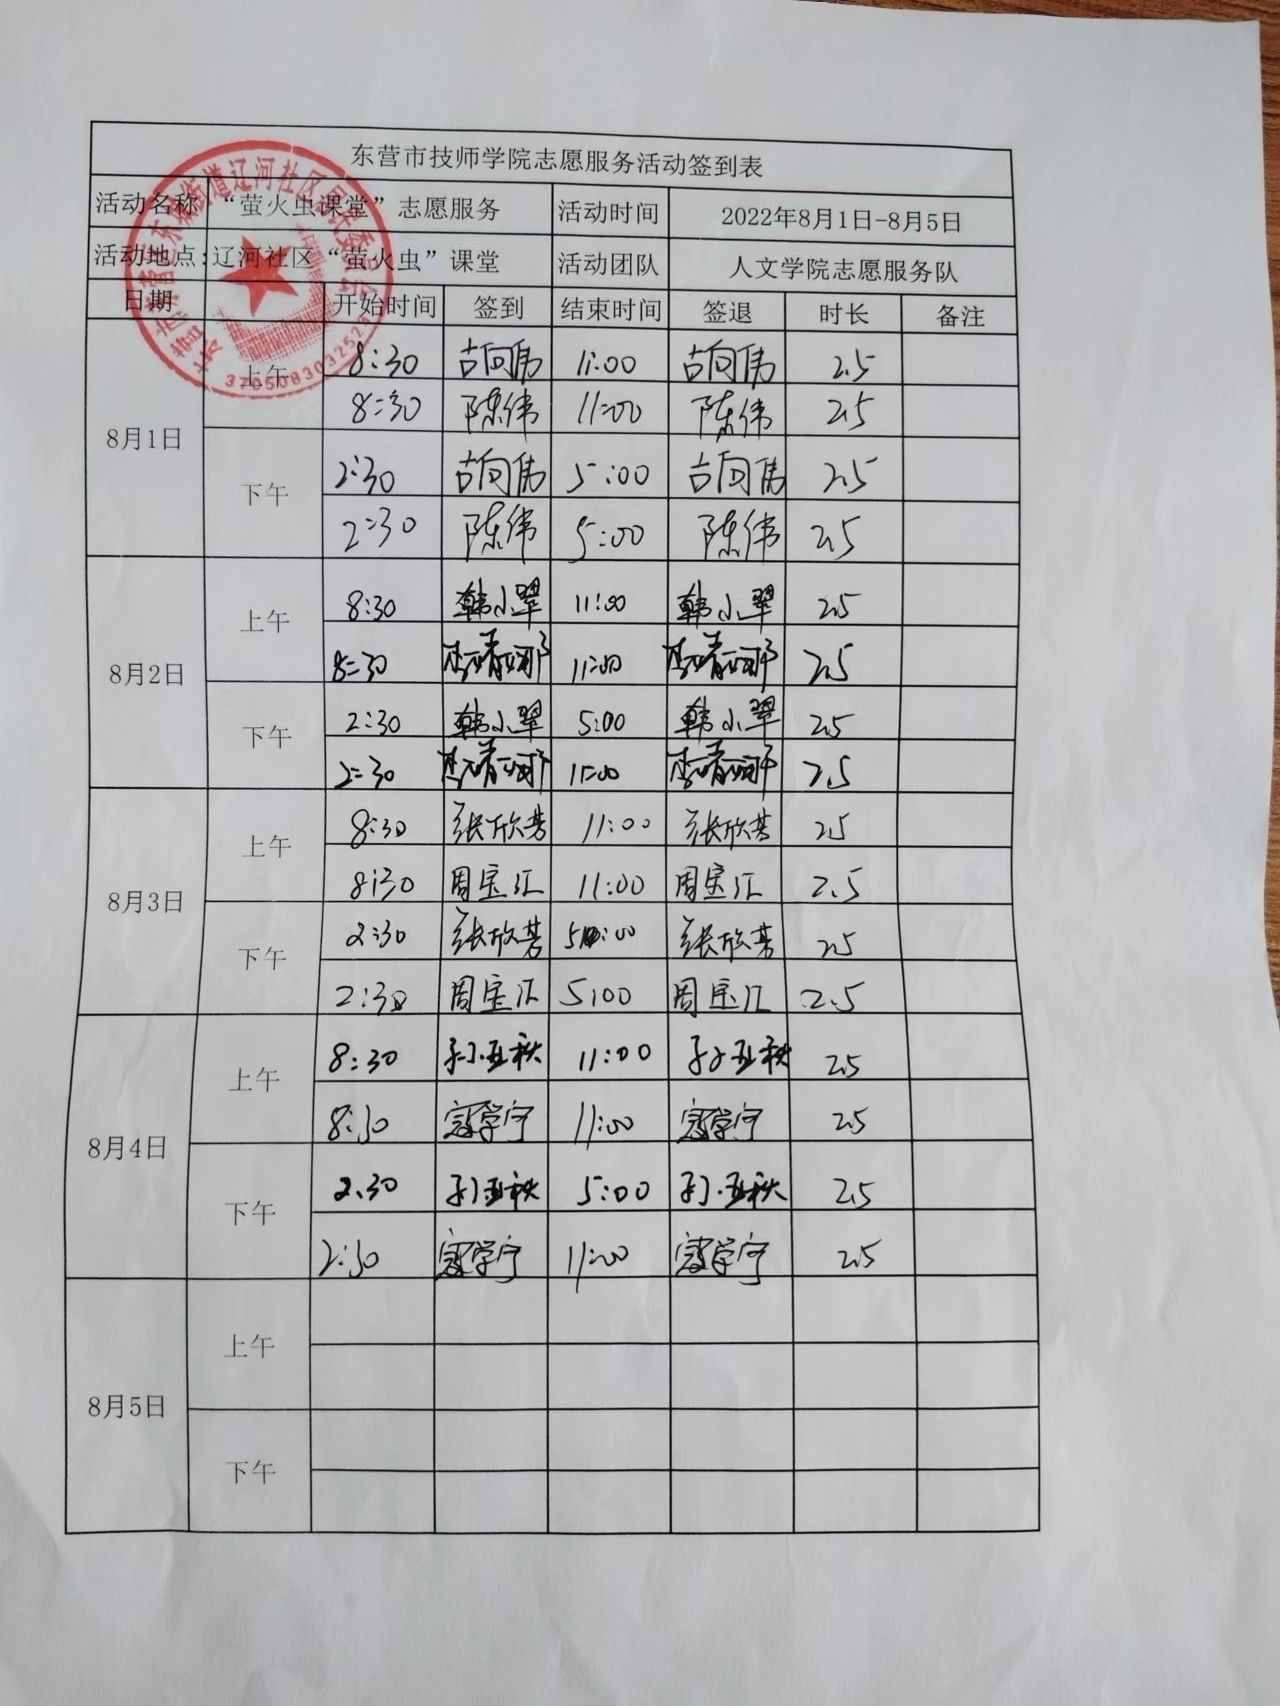 东营市技师学院志愿服务活动签到表
活动名称 “萤火虫课堂”志愿服务 活动时间 2022年8月1日-8月5日
活动地点:辽河社区“萤火虫”课堂 活动团队 人文学院志愿服务队
日期 开始时间 签到 结束时间 签退 时长 备注
8月1日 上午 8:30 古向伟 11:00 古向伟 2.5
8:30 陈伟 11:00 陈伟 2.5
下午 2:30 古向伟 5:00 古向伟 2.5
2:30 陈伟 5:00 陈伟 2.5
8月2日 上午 8:30 韩小翠 11:00 韩小翠 2.5
8:30 11:00 2.5
下午 2:30 韩小翠 5:00 韩小翠 2.5
2:30 11:00 2.5
8月3日 上午 8:30 张欣芳 11:00 张欣芳 2.5
8:30 周宝汇 11:00 周宝汇 2.5
下午 2:30 张欣芳 5:00 张欣芳 2.5
2:30 周宝汇 5:00 周宝汇 2.5
8月4日 上午 8:30 孙亚秋 11:00 孙亚秋 2.5
8:30 寇学宁 11:00 寇学宁 2.5
下午 2.30 孙亚秋 5:00 孙亚秋 2.5
2:30 寇学宁 11:00 寇学宁 2.5
8月5日 上午
下午
3705083032529